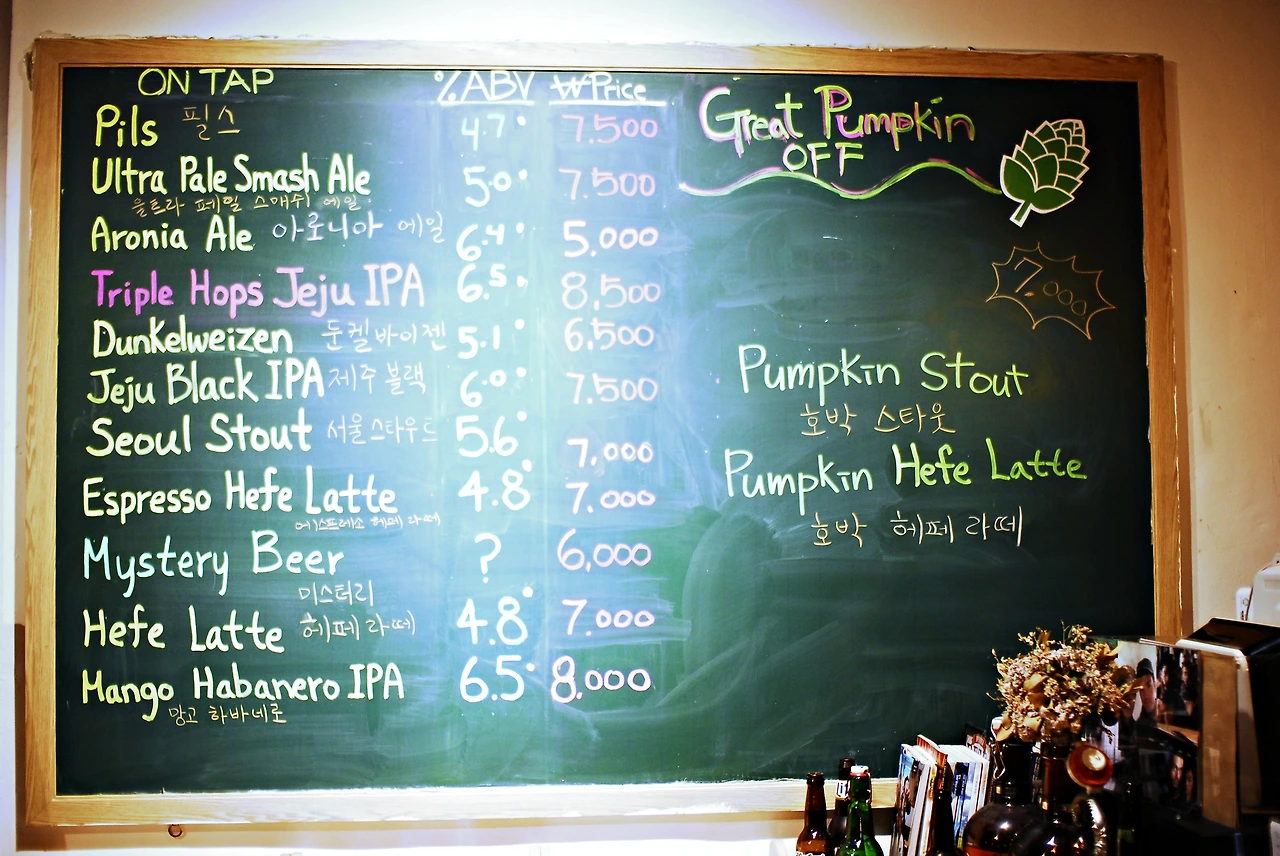 ON TAP %ABV ₩Price
Pils 필스 4.7° 7.500
Ultra Pale Smash Ale 5.0° 7.500
울트라 페일 스매쉬 에일
Aronia Ale 아로니아 에일 6.4° 5.000
Triple Hops Jeju IPA 6.5° 8,500
Dunkelweizen 둔켈바이젠 5.1° 6.500
Jeju Black IPA 제주 블랙 6.0° 7.500
Seoul Stout 서울스타우트 5.6° 7,000
Espresso Hefe Latte 4.8° 7.000
에스프레소 헤페 라떼
Mystery Beer ? 6,000
미스터리
Hefe Latte 헤페 라떼 4.8° 7.000
Mango Habanero IPA 6.5° 8.000
망고 하바네로
Great Pumpkin
OFF
7.000
Pumpkin Stout
호박 스타웃
Pumpkin Hefe Latte
호박 헤페 라떼